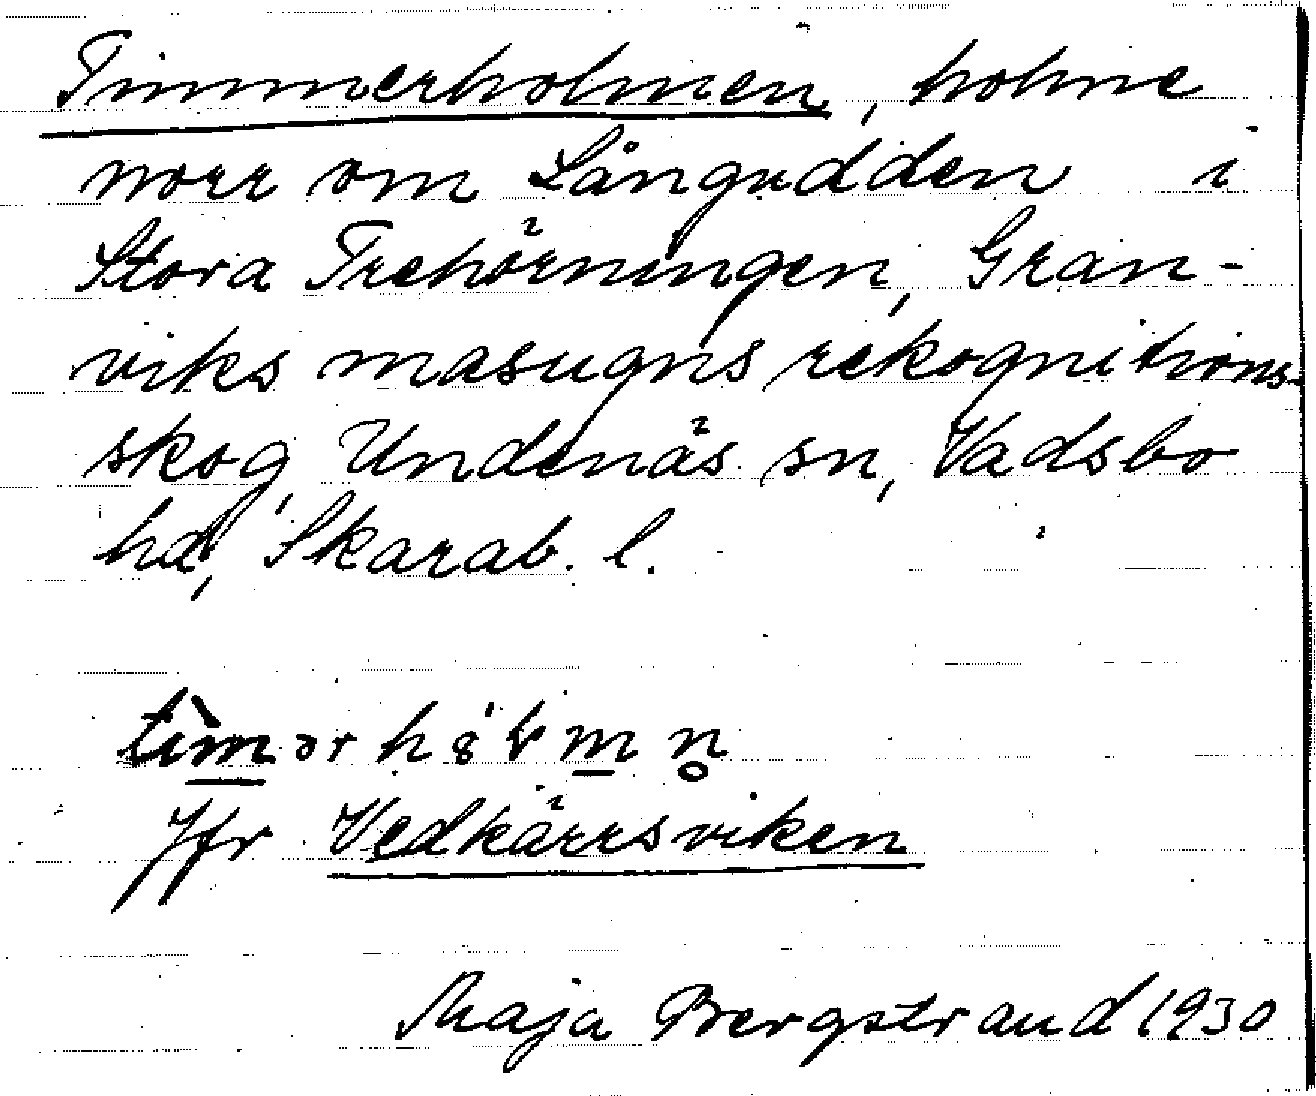 Timmerholmen, holme
norr om Långudden i
Stora Trehörningen, Gran-
viks masugns rekognitions-
skog, Undenäs sn, Vadsbo
hd, Skarab. l.
Jfr Vedkärrsviken
Maja Bergstrand 1930